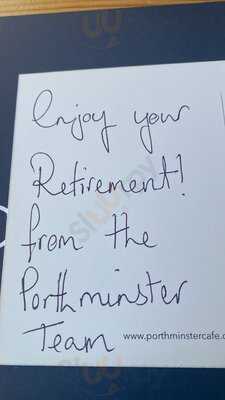 Enjoy your
Retirement!
from the
Porthminster
Team
www.porthminstercafe.c